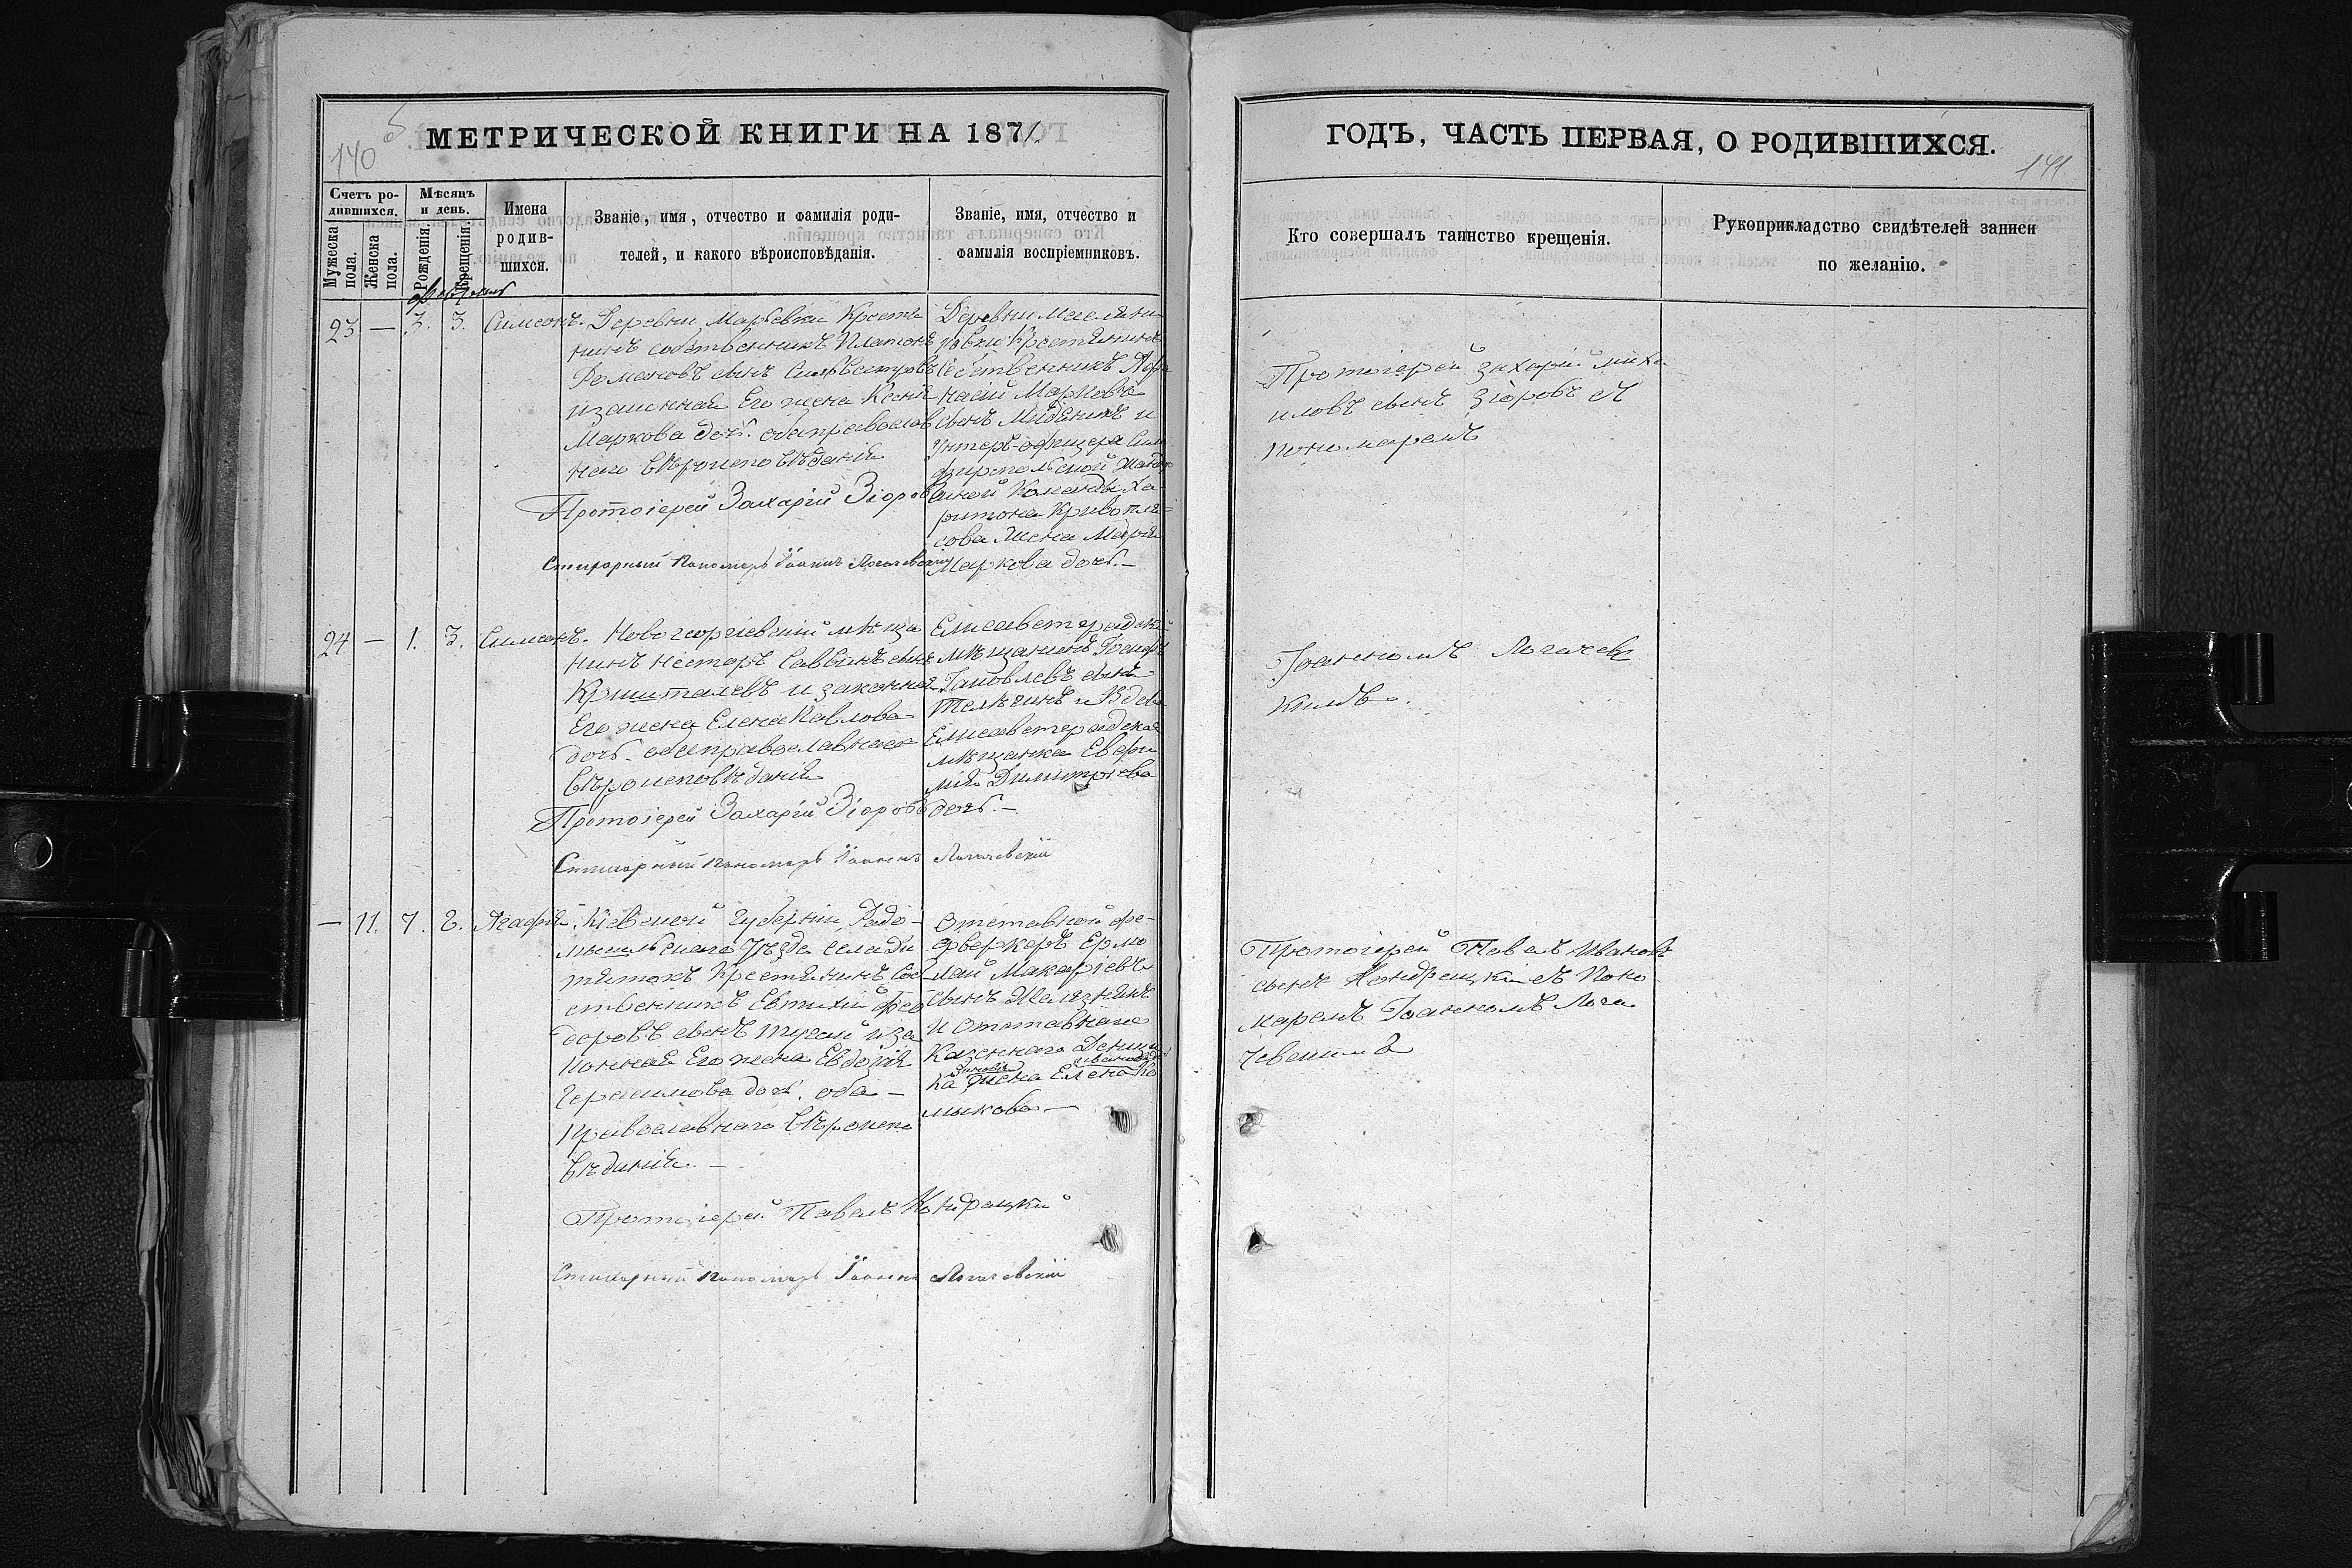 МЕТРИЧЕСКОЙ КНИГИ НА 1871.
140
Счетъ ро-
дившихся.
Мужеска пола.
Женска пола.
Мѣсяцъ
и день.
Рожденія.
Крещенія.
Имена
родив-
шихся.
Званіе, имя, отчество и фамилія роди-
телей, и какого вѣроисповѣданія.
Званіе, имя, отчество и
фамилія воспріемниковъ.
23 — 3. 3. Симеонъ.
Деревни Марьевки Крестья
нинъ собственникъ Платонъ
Романовъ сынъ
и законная Его жена Ксенія
Маркова дочь. оба православ
наго вѣроисповѣданія
Протоіерей Захарій Зіоровъ
Стихарный Пономарь Іоаннъ Логачевскій
Деревни
Крестьянинъ
Собственникъ Афа
насій Марковъ
сынъ и
Унтеръ-офицера Сим
феропольской Жанда
рмской Команды Ха
ритона Кривопля=
сова Жена Марія
Маркова дочь.—
24 — 1. 3. Симеонъ.
Новогеоргіевскій мѣща
нинъ Несторъ Саввинъ сынъ
Кришталевъ и законная
Его жена Елена Павлова
дочь. оба православнаго
вѣроисповѣданія
Протоіерей Захарій Зіоровъ
Стихарный пономарь Іоаннъ Логачевскій
Елисаветградскій
мѣщанинъ Іосифъ
Іаковлевъ сынъ
и Вдова
Елисаветградская
мѣщанка Евфи
мія Димитріева
дочь.—
— 11. 7. 8. Агафія.
Кіевской Губерніи, Радо-
мысльскаго Уѣзда
Крестьянинъ Соб
ственникъ Евтихій Фео
доровъ сынъ и за
конная Его жена Евдокія
Герасимова дочь. оба —
Православнаго вѣроиспо
вѣданія.—
Протоіерей Павелъ Кондрацкій
Стихарный пономарь Іоаннъ Логачевскій
Отставной фе-
йерверкеръ Ермо
лай Макаріевъ
сынъ Желѣзнякъ
и Отставнаго
Казеннаго Денщи
ка жена Елена Ко
лыкова —
ГОДЪ, ЧАСТЬ ПЕРВАЯ, О РОДИВШИХСЯ.
141
Кто совершалъ таинство крещенія.
Рукоприкладство свидѣтелей записи
по желанію.
Протоіерей Захарій Миха
иловъ сынъ Зіоровъ съ
пономаремъ
Іоанномъ Логачевс
кимъ.
Протоіерей Павелъ Ивановъ
сынъ Кондрацкій съ Поно
маремъ Іоанномъ Лога
чевскимъ